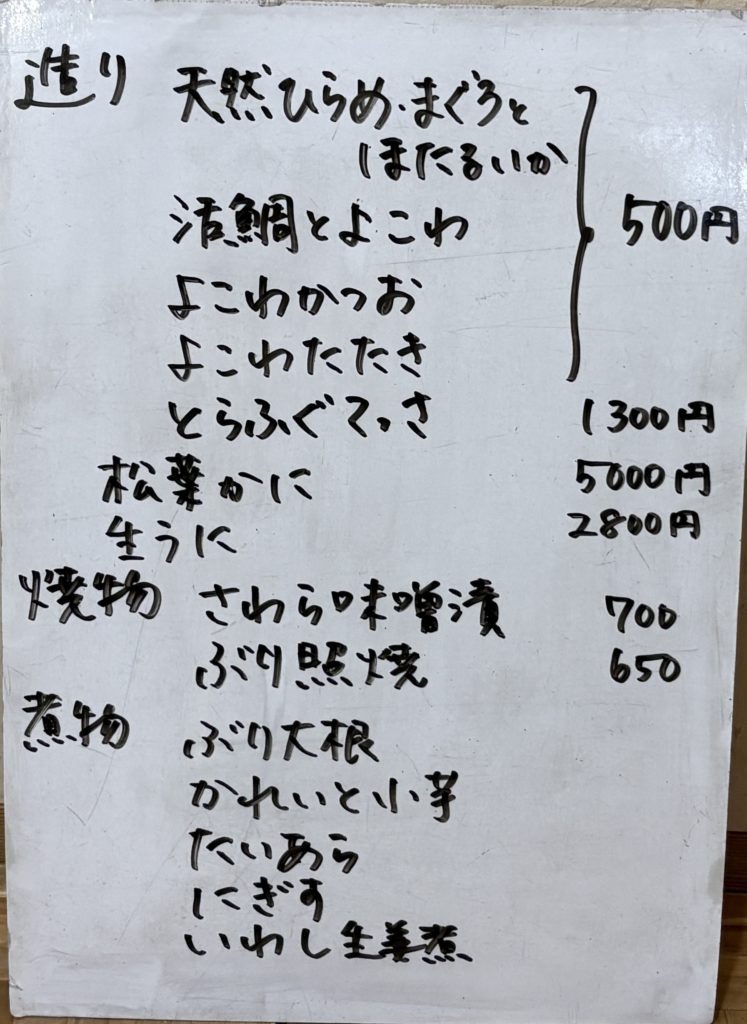 造り 天然ひらめ・まぐろと
ほたるいか
活鯛とよこわ 500円
よこわかつお
よこわたたき
とらふぐてっさ 1300円
松葉かに 5000円
生うに 2800円
焼物 さわら味噌漬 700
ぶり照焼 650
煮物 ぶり大根
かれいと小芋
たいあら
にぎす
いわし生姜煮